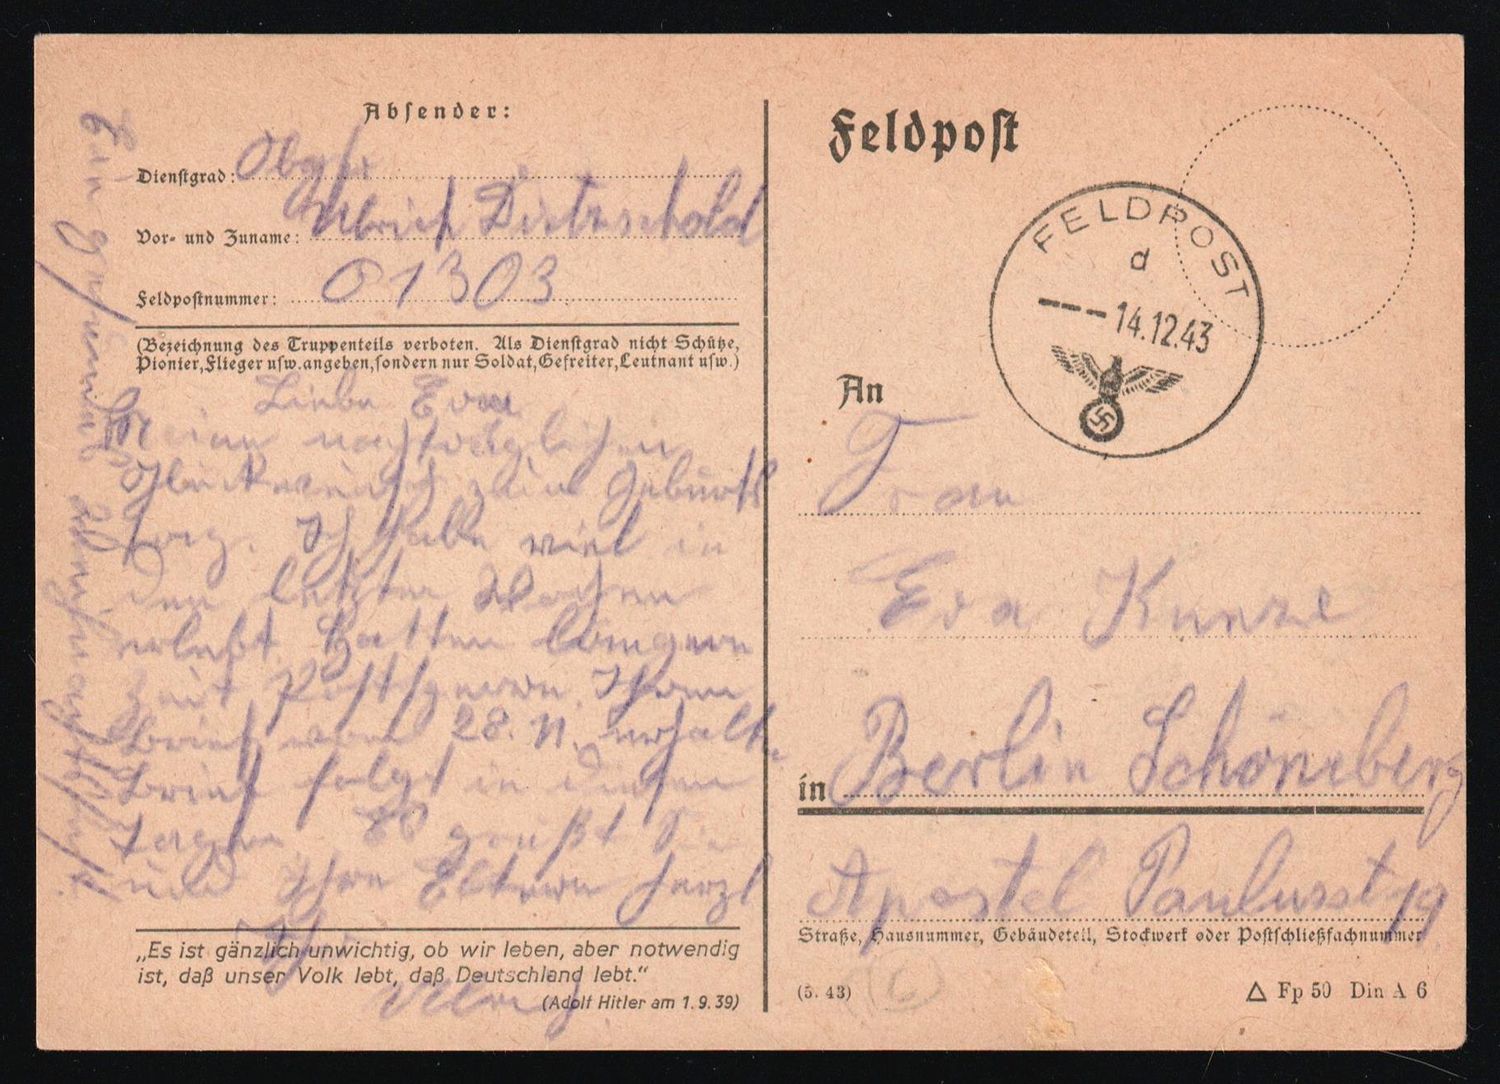 Absender:
Dienstgrad: Obgfr
Vor- und Zuname: Ulrich Dietzschold
Feldpostnummer: 01303
(Bezeichnung des Truppenteils verboten. Als Dienstgrad nicht Schütze,
Pionier, Flieger usw. angeben, sondern nur Soldat, Gefreiter, Leutnant usw.)
Liebe Eva
Meine nachträglichen
Glückwünsche zum Geburts
tag. Ich habe viel in
den letzten Wochen
erlebt. Hatten längere
Zeit Postsperre. Ihren
Brief vom 28. 11. erhalten
Brief folgt in diesen
Tagen. Es grüßt Sie
und Ihre Eltern herzl
Ihr
Ulrich
Ein gesundes Weihnachtsfest.
„Es ist gänzlich unwichtig, ob wir leben, aber notwendig
ist, daß unser Volk lebt, daß Deutschland lebt.“
(Adolf Hitler am 1.9.39)
Feldpost
FELDPOST
d
14.12.43
An
Frau
Eva Kunze
in Berlin Schöneberg
Apostel Paulusst 19
Straße, Hausnummer, Gebäudeteil, Stockwerk oder Postschließfachnummer
(5. 43)
6
△ Fp 50 Din A 6